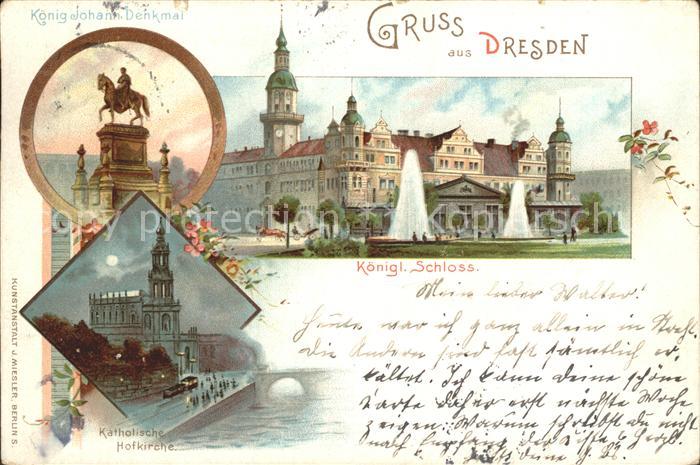 König Johann Denkmal
GRUSS
aus DRESDEN
copy protection Kopierschutz
Königl. Schloss.
Mein lieber Walter!
Heute war ich ganz allein in
die Andern sind fast sämtlich er-
kältet. Ich kann deine schöne
Karte daher erst nächste Woche
zeigen. Warum schreibst du nicht
nach Empfang der
Katholische
Hofkirche.
KUNSTANSTALT J. MIESLER, BERLIN S.